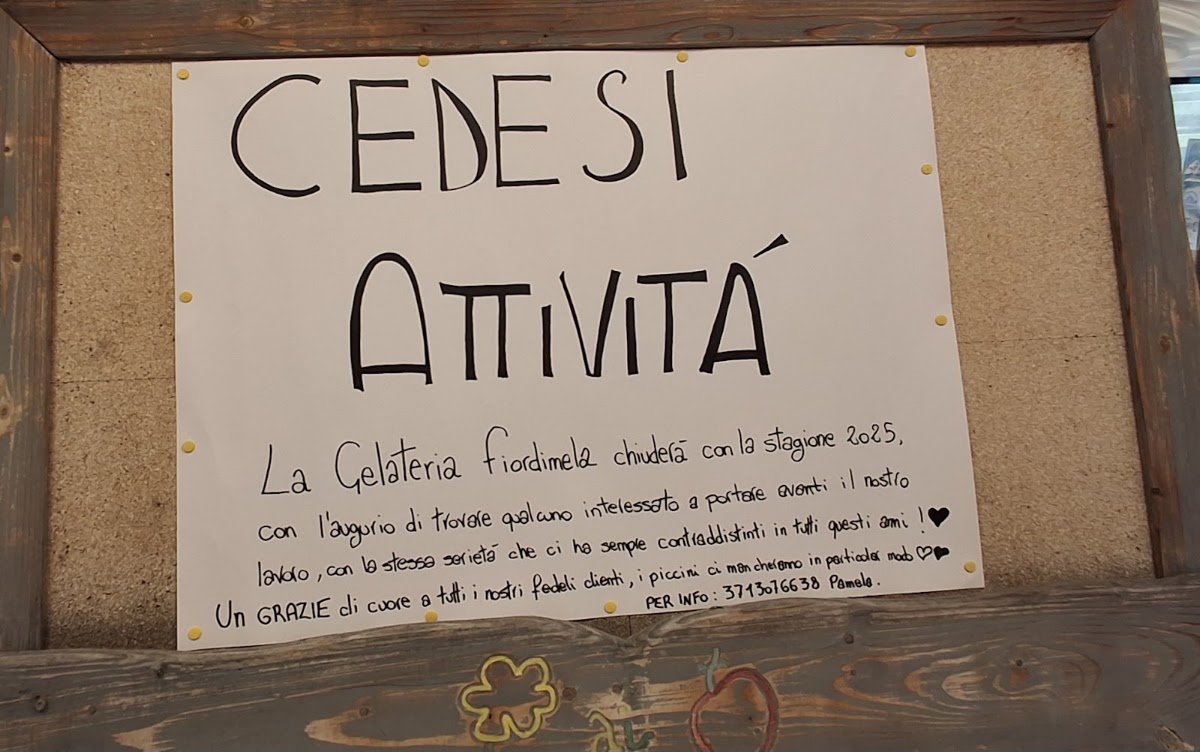 CEDESI
ATTIVITÁ
La Gelateria fiordimela chiuderà con la stagione 2025,
con l'augurio di trovare qualcuno interessato a portare avanti il nostro
lavoro, con la stessa serietà che ci ha sempre contraddistinti in tutti questi anni ! ♥
Un GRAZIE di cuore a tutti i nostri fedeli clienti, i piccini ci mancheranno in particolar modo ♡♥
PER INFO : 3713076638 Pamela.